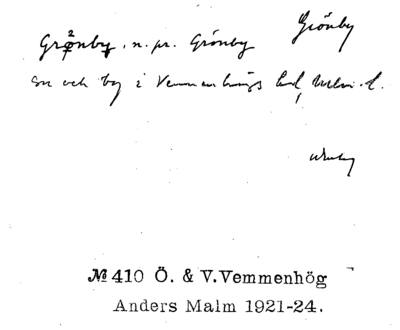 Grönby
Grønby, n. pr. Grönby
sn och by i Vemmenhögs hd, Malm. l.
№ 410 Ö. & V. Vemmenhög
Anders Malm 1921-24.